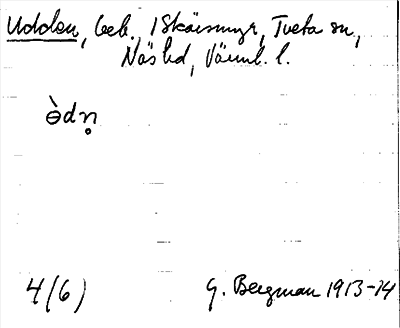 Udden, beb., i Skärmnyr, Tveta sn,
Näs hd, Värml. l.
èdn̥
4(6) G. Bergman 1913-14